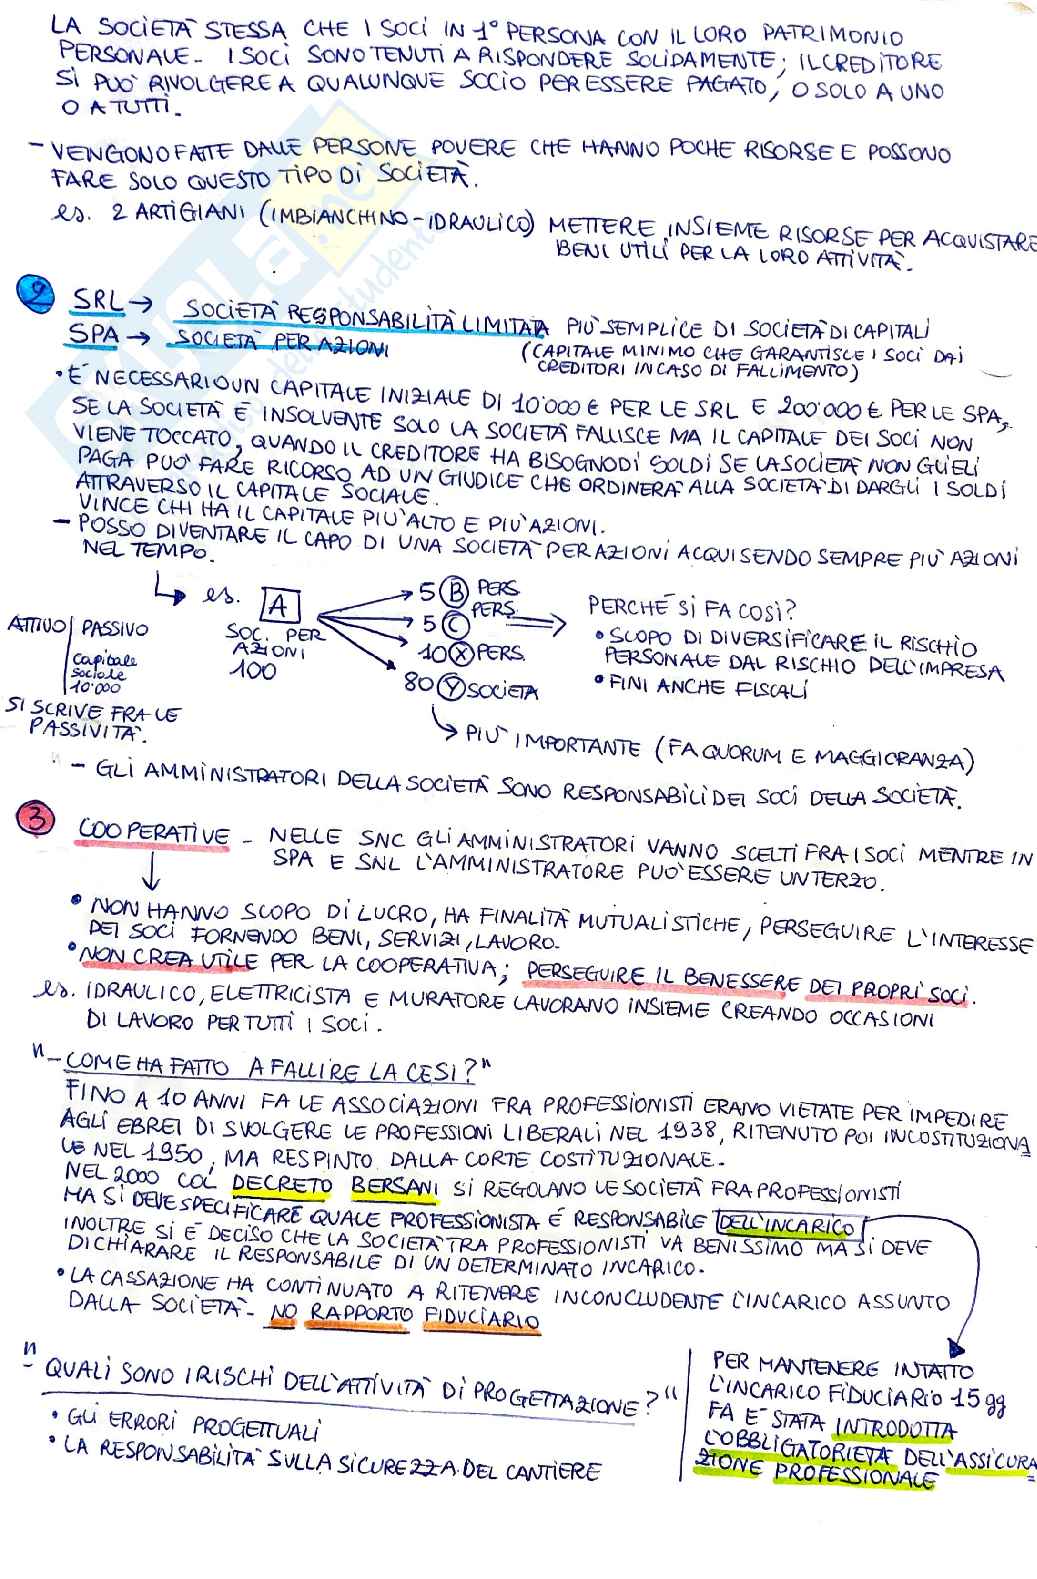 LA SOCIETÀ STESSA CHE I SOCI IN 1° PERSONA CON IL LORO PATRIMONIO
PERSONALE - I SOCI SONO TENUTI A RISPONDERE SOLIDAMENTE; IL CREDITORE
SI PUÒ RIVOLGERE A QUALUNQUE SOCIO PER ESSERE PAGATO, O SOLO A UNO
O A TUTTI.
- VENGONO FATTE DALLE PERSONE POVERE CHE HANNO POCHE RISORSE E POSSONO
FARE SOLO QUESTO TIPO DI SOCIETÀ.
es. 2 ARTIGIANI (IMBIANCHINO-IDRAULICO) METTERE INSIEME RISORSE PER ACQUISTARE
BENI UTILI PER LA LORO ATTIVITÀ.
2 SRL → SOCIETÀ RESPONSABILITÀ LIMITATA PIÙ SEMPLICE DI SOCIETÀ DI CAPITALI
SPA → SOCIETÀ PER AZIONI (CAPITALE MINIMO CHE GARANTISCE I SOCI DAI
CREDITORI IN CASO DI FALLIMENTO)
• È NECESSARIO UN CAPITALE INIZIALE DI 10'000 € PER LE SRL E 200'000 € PER LE SPA,
SE LA SOCIETÀ È INSOLVENTE SOLO LA SOCIETÀ FALLISCE MA IL CAPITALE DEI SOCI NON
VIENE TOCCATO, QUANDO IL CREDITORE HA BISOGNO DI SOLDI SE LA SOCIETÀ NON GLIELI
PAGA PUÒ FARE RICORSO AD UN GIUDICE CHE ORDINERÀ ALLA SOCIETÀ DI DARGLI I SOLDI
ATTRAVERSO IL CAPITALE SOCIALE.
VINCE CHI HA IL CAPITALE PIÙ ALTO E PIÙ AZIONI.
- POSSO DIVENTARE IL CAPO DI UNA SOCIETÀ PER AZIONI ACQUISENDO SEMPRE PIÙ AZIONI
NEL TEMPO.
↳ es. A
SOC. PER
AZIONI
100
5 B PERS.
5 C PERS.
10 X PERS.
80 Y SOCIETÀ
PERCHÉ SI FA COSÌ?
• SCOPO DI DIVERSIFICARE IL RISCHIO
PERSONALE DAL RISCHIO DELL'IMPRESA
• FINI ANCHE FISCALI
ATTIVO | PASSIVO
capitale
sociale
10'000
SI SCRIVE FRA LE
PASSIVITÀ.
↳ PIÙ IMPORTANTE (FA QUORUM E MAGGIORANZA)
" - GLI AMMINISTRATORI DELLA SOCIETÀ SONO RESPONSABILI DEI SOCI DELLA SOCIETÀ.
3 COOPERATIVE - NELLE SNC GLI AMMINISTRATORI VANNO SCELTI FRA I SOCI MENTRE IN
SPA E SNL L'AMMINISTRATORE PUÒ ESSERE UN TERZO.
• NON HANNO SCOPO DI LUCRO, HA FINALITÀ MUTUALISTICHE, PERSEGUIRE L'INTERESSE
DEI SOCI FORNENDO BENI, SERVIZI, LAVORO.
• NON CREA UTILE PER LA COOPERATIVA; PERSEGUIRE IL BENESSERE DEI PROPRI SOCI.
es. IDRAULICO, ELETTRICISTA E MURATORE LAVORANO INSIEME CREANDO OCCASIONI
DI LAVORO PER TUTTI I SOCI.
"- COME HA FATTO A FALLIRE LA CESI?"
FINO A 10 ANNI FA LE ASSOCIAZIONI FRA PROFESSIONISTI ERANO VIETATE PER IMPEDIRE
AGLI EBREI DI SVOLGERE LE PROFESSIONI LIBERALI NEL 1938, RITENUTO POI INCOSTITUZIONA
LE NEL 1950, MA RESPINTO DALLA CORTE COSTITUZIONALE.
NEL 2000 COL DECRETO BERSANI SI REGOLANO LE SOCIETÀ FRA PROFESSIONISTI
MA SI DEVE SPECIFICARE QUALE PROFESSIONISTA È RESPONSABILE DELL'INCARICO
INOLTRE SI È DECISO CHE LA SOCIETÀ TRA PROFESSIONISTI VA BENISSIMO MA SI DEVE
DICHIARARE IL RESPONSABILE DI UN DETERMINATO INCARICO.
• LA CASSAZIONE HA CONTINUATO A RITENERE INCONCLUDENTE L'INCARICO ASSUNTO
DALLA SOCIETÀ - NO RAPPORTO FIDUCIARIO
"- QUALI SONO I RISCHI DELL'ATTIVITÀ DI PROGETTAZIONE?"
• GLI ERRORI PROGETTUALI
• LA RESPONSABILITÀ SULLA SICUREZZA DEL CANTIERE
PER MANTENERE INTATTO
L'INCARICO FIDUCIARIO 15 gg
FA È STATA INTRODOTTA
L'OBBLIGATORIETÀ DELL'ASSICURA
ZIONE PROFESSIONALE